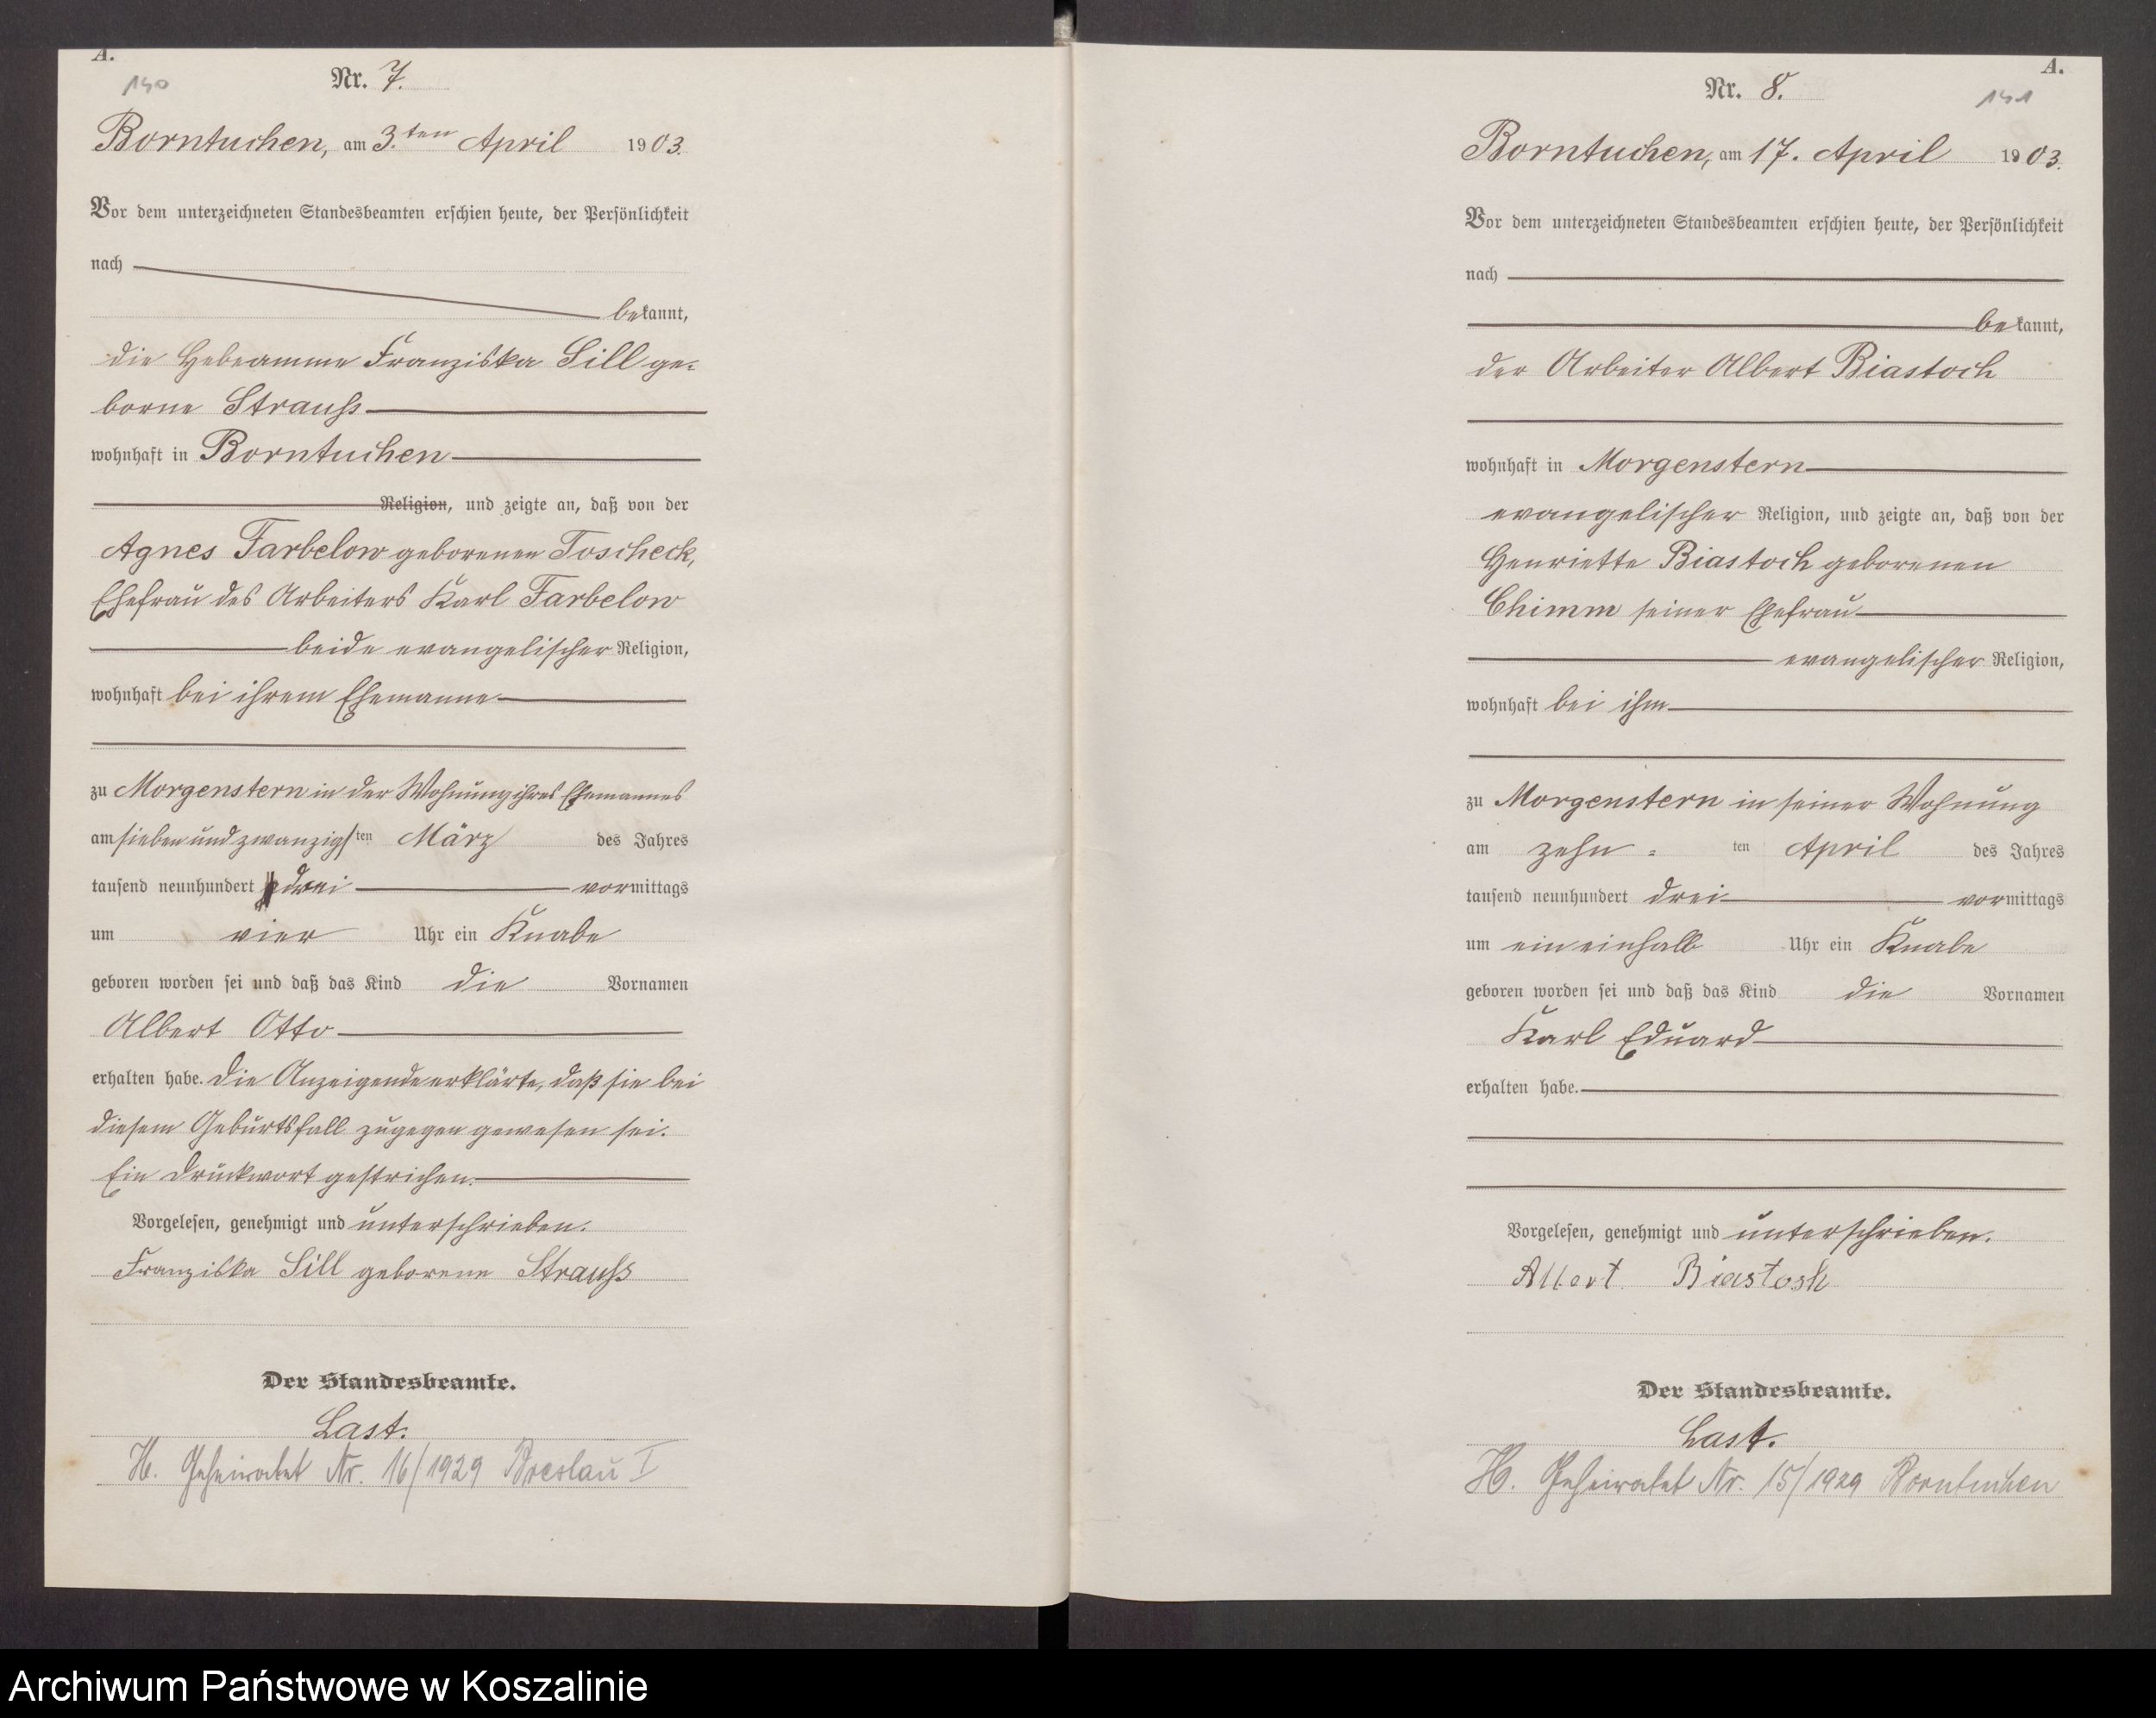 A.
140
Nr. 7.
Borntuchen, am 3.ten April 1903.
Vor dem unterzeichneten Standesbeamten erschien heute, der Persönlichkeit
nach
bekannt,
die Hebeamme Franziska Sill ge-
borne Strauß
wohnhaft in Borntuchen
Religion, und zeigte an, daß von der
Agnes Farbelow geborenen Toscheck,
Ehefrau des Arbeiters Karl Farbelow
beide evangelischer Religion,
wohnhaft bei ihrem Ehemanne
zu Morgenstern in der Wohnung ihres Ehemannes
am sieben und zwanzigsten März des Jahres
tausend neunhundert drei vormittags
um vier Uhr ein Knabe
geboren worden sei und daß das Kind die Vornamen
Albert Otto
erhalten habe. Die Anzeigende erklärte, daß sie bei
diesem Geburtsfall zugegen gewesen sei.
Ein Druckwort gestrichen.
Vorgelesen, genehmigt und unterschrieben.
Franziska Sill geborene Strauß
Der Standesbeamte.
Last.
H. Geheiratet Nr. 16/1929 Breslau I
A.
141
Nr. 8.
Borntuchen, am 17. April 1903.
Vor dem unterzeichneten Standesbeamten erschien heute, der Persönlichkeit
nach
bekannt,
der Arbeiter Albert Biastoch
wohnhaft in Morgenstern
evangelischer Religion, und zeigte an, daß von der
Henriette Biastoch geborenen
Chimm seiner Ehefrau
evangelischer Religion,
wohnhaft bei ihm
zu Morgenstern in seiner Wohnung
am zehn = ten April des Jahres
tausend neunhundert drei vormittags
um ein einhalb Uhr ein Knabe
geboren worden sei und daß das Kind die Vornamen
Karl Eduard
erhalten habe.
Vorgelesen, genehmigt und unterschrieben.
Albert Biastosh
Der Standesbeamte.
Last.
H. Geheiratet Nr. 15/1929 Borntuchen
Archiwum Państwowe w Koszalinie